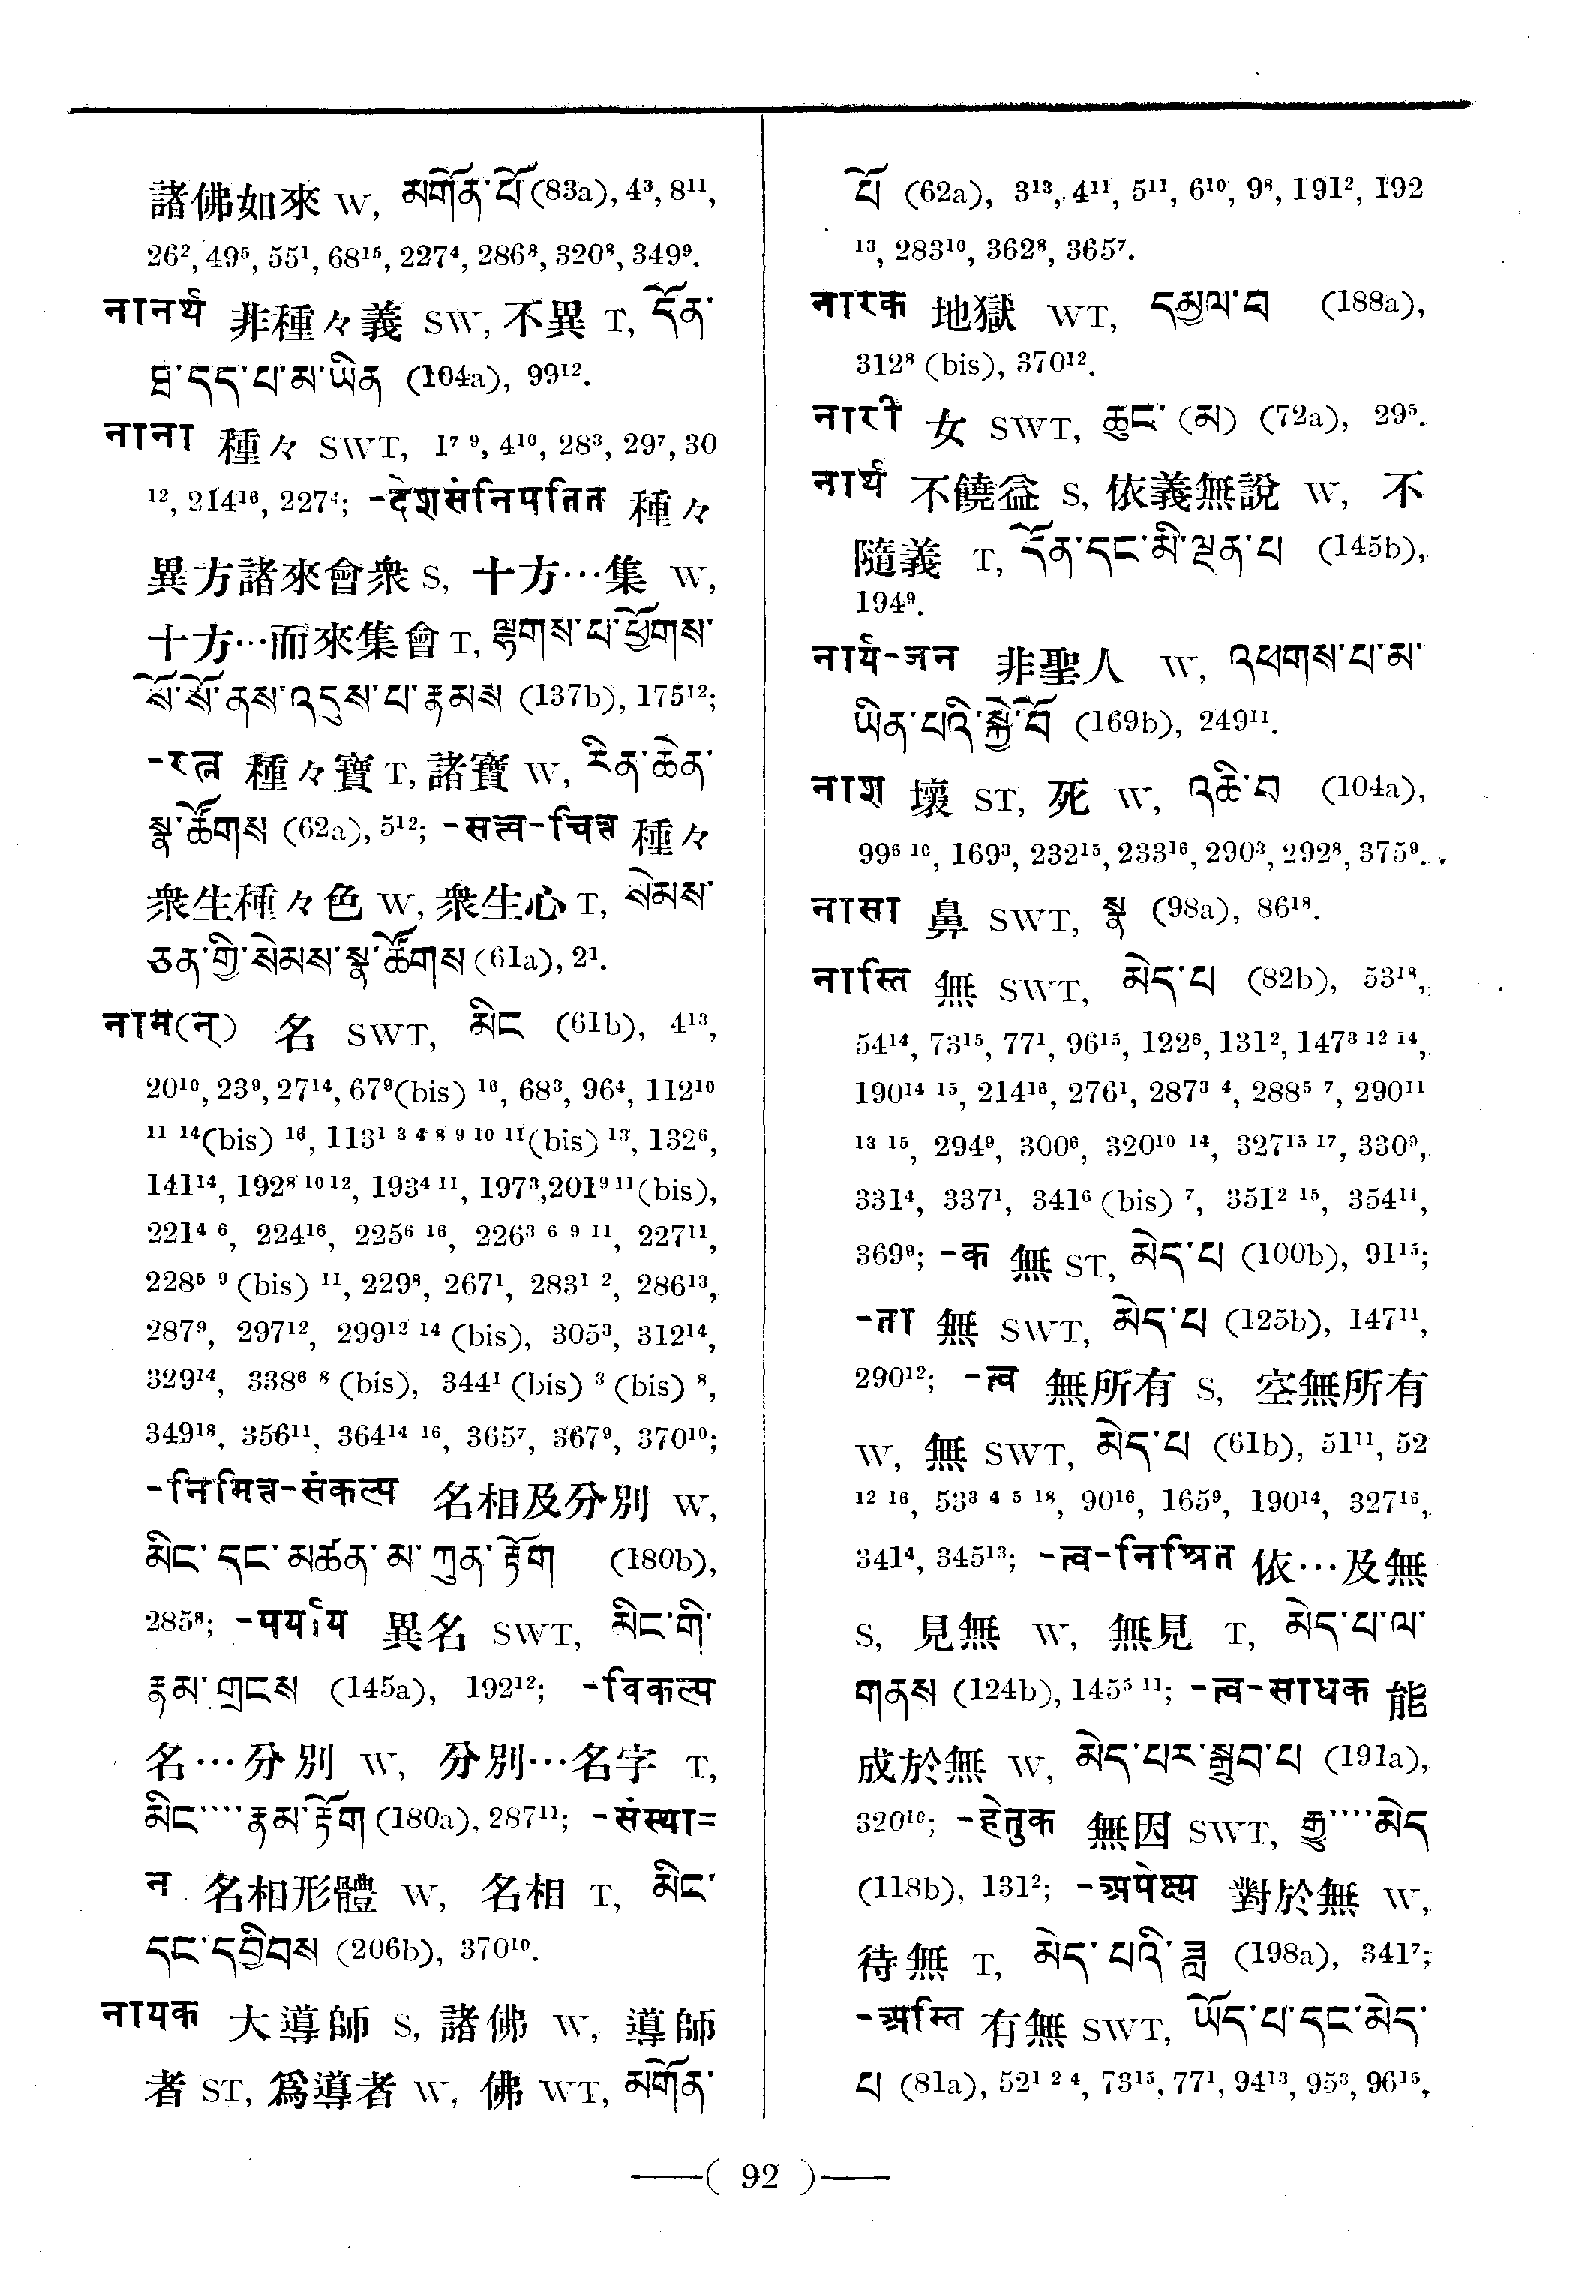 諸佛如來 W, མགོན་པོ (83a), 4³, 8¹¹,
26², 49⁵, 55¹, 68¹⁵, 227⁴, 286⁸, 320⁸, 349⁹.
नानर्थ 非種々義 SW, 不異 T, དོན་
ཐ་དད་པ་མ་ཡིན (104a), 99¹².
नाना 種々 SWT, 1⁷ ⁹, 4¹⁰, 28³, 29⁷, 30
¹², 214¹⁶, 227⁴; -देशसंनिपतित 種々
異方諸來會衆 S, 十方…集 W,
十方…而來集會 T, ལྷགས་པ་ཕྱོགས་
སོ་སོ་ནས་འདུས་པ་རྣམས (137b), 175¹²;
-रत्न 種々寶 T, 諸寶 W, རིན་ཆེན་
སྣ་ཚོགས (62a), 5¹²; -सत्त्व-चित्त 種々
衆生種々色 W, 衆生心 T, སེམས་
ཅན་གྱི་སེམས་སྣ་ཚོགས (61a), 2¹.
नाम(न्) 名 SWT, མིང (61b), 4¹³,
20¹⁰, 23⁹, 27¹⁴, 67⁹(bis) ¹⁶, 68³, 96⁴, 112¹⁰
¹¹ ¹⁴(bis) ¹⁶, 113¹ ³ ⁴ ⁸ ⁹ ¹⁰ ¹¹(bis) ¹³, 132⁶,
141¹⁴, 192⁸ ¹⁰ ¹², 193⁴ ¹¹, 197³, 201⁹ ¹¹(bis),
221⁴ ⁶, 224¹⁶, 225⁶ ¹⁶, 226³ ⁶ ⁹ ¹¹, 227¹¹,
228⁵ ⁹ (bis) ¹¹, 229⁸, 267¹, 283¹ ², 286¹³,
287⁹, 297¹², 299¹² ¹⁴ (bis), 305³, 312¹⁴,
329¹⁴, 338⁶ ⁸ (bis), 344¹ (bis) ³ (bis) ⁸,
349¹⁸, 356¹¹, 364¹⁴ ¹⁶, 365⁷, 367⁹, 370¹⁰;
-निमित्त-संकल्प 名相及分別 W,
མིང་དང་མཚན་མ་ཀུན་རྟོག (180b),
285⁸; -पर्याय 異名 SWT, མིང་གི་
རྣམ་གྲངས (145a), 192¹²; -विकल्प
名…分別 W, 分別…名字 T,
མིང་…་རྣམ་རྟོག (180a), 287¹¹; -संस्था=
न 名相形體 W, 名相 T, མིང་
དང་དབྱིབས (206b), 370¹⁰.
नायक 大導師 S, 諸佛 W, 導師
者 ST, 爲導者 W, 佛 WT, མགོན་
པོ (62a), 3¹³, 4¹¹, 5¹¹, 6¹⁰, 9⁸, 191², 192
¹³, 283¹⁰, 362⁸, 365⁷.
नारक 地獄 WT, དམྱལ་བ (188a),
312⁸ (bis), 370¹².
नारी 女 SWT, ཆུང་(མ) (72a), 29⁵.
नार्थ 不饒益 S, 依義無說 W, 不
隨義 T, དོན་དང་མི་ལྡན་པ (145b),
194⁹.
नार्य-जन 非聖人 W, འཕགས་པ་མ་
ཡིན་པའི་སྐྱེ་བོ (169b), 249¹¹.
नाश 壞 ST, 死 W, འཆི་བ (104a),
99⁶ ¹⁰, 169³, 232¹⁵, 233¹⁶, 290³, 292⁸, 375⁹.
नासा 鼻 SWT, སྣ (98a), 86¹⁸.
नास्ति 無 SWT, མེད་པ (82b), 53¹⁸,
54¹⁴, 73¹⁵, 77¹, 96¹⁵, 122⁶, 131², 147³ ¹² ¹⁴,
190¹⁴ ¹⁵, 214¹⁶, 276¹, 287³ ⁴, 288⁵ ⁷, 290¹¹
¹³ ¹⁵, 294⁹, 300⁶, 320¹⁰ ¹⁴, 327¹⁵ ¹⁷, 330⁹,
331⁴, 337¹, 341⁶ (bis) ⁷, 351² ¹⁵, 354¹¹,
369⁹; -क 無 ST, མེད་པ (100b), 91¹⁵;
-ता 無 SWT, མེད་པ (125b), 147¹¹,
290¹²; -त्व 無所有 S, 空無所有
W, 無 SWT, མེད་པ (61b), 51¹¹, 52
¹² ¹⁶, 53³ ⁴ ⁵ ¹⁸, 90¹⁶, 165⁹, 190¹⁴, 327¹⁶,
341⁴, 345¹³; -त्व-निश्रित 依…及無
S, 見無 W, 無見 T, མེད་པ་ལ་
གནས (124b), 145⁵ ¹¹; -त्व-साधक 能
成於無 W, མེད་པར་སྒྲུབ་པ (191a),
320¹⁰; -हेतुक 無因 SWT, རྒྱུ་…་མེད
(118b), 131²; -अपेक्ष्य 對於無 W,
待無 T, མེད་པའི་ཟླ (198a), 341⁷;
-अस्ति 有無 SWT, ཡོད་པ་དང་མེད་
པ (81a), 52¹ ² ⁴, 73¹⁵, 77¹, 94¹³, 95³, 96¹⁵,
—( 92 )—